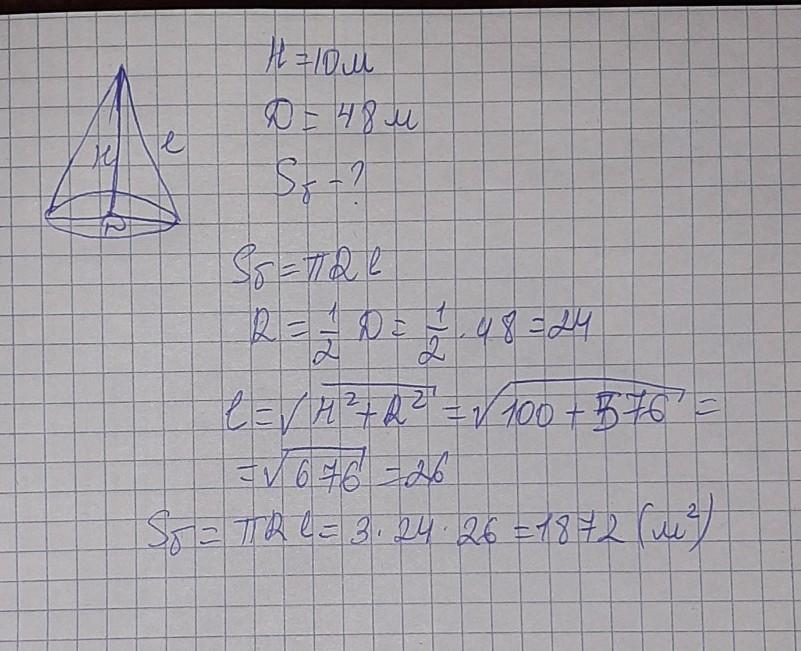 H = 10 м
D = 48 м
Sб - ?
H
l
D
Sб = πRl
R = 1/2 D = 1/2 · 48 = 24
l = √H²+R² = √100 + 576 =
= √676 = 26
Sб = πRl = 3 · 24 · 26 = 1872 (м²)